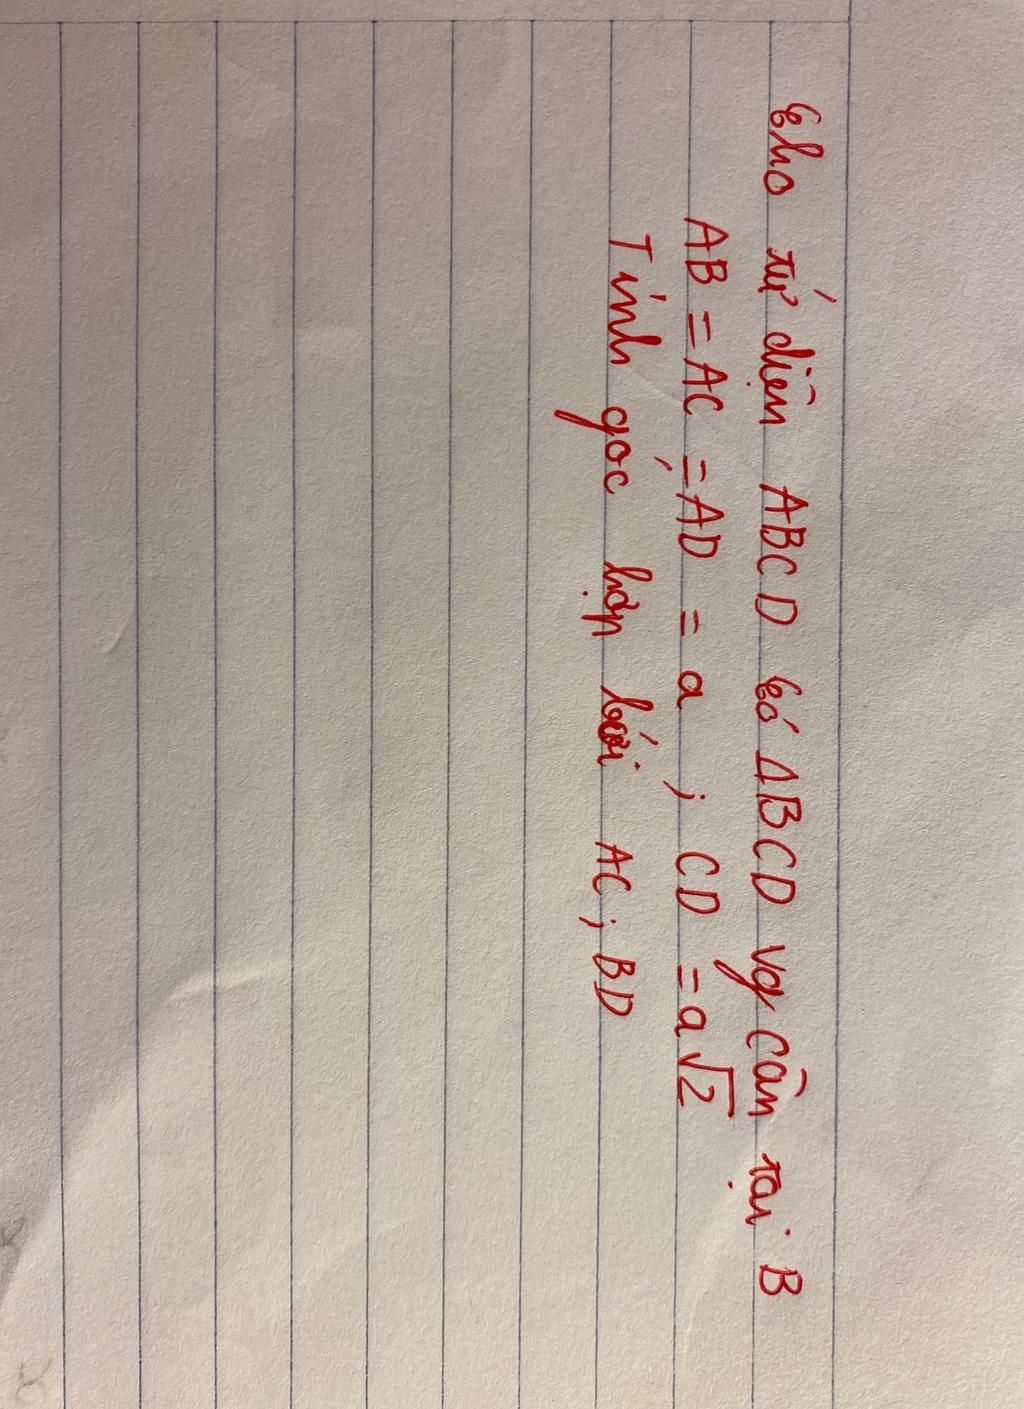 Cho tứ diện ABCD có ΔBCD vg cân tại B
AB = AC = AD = a ; CD = a√2
Tính góc hợp bởi AC ; BD